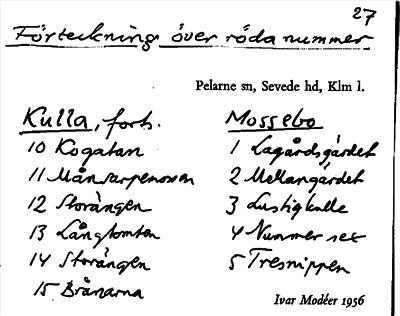 27
Förteckning över röda nummer
Pelarne sn, Sevede hd, Klm l.
Kulla, forts.
10 Kogatan
11
12 Storängen
13 Långtomten
14 Storängen
15 Brånarna
Mossebo
1 Lagårdsgärdet
2 Mellangärdet
3 Lustigkulle
4 Nummer sex
5 Tresnippen
Ivar Modéer 1956